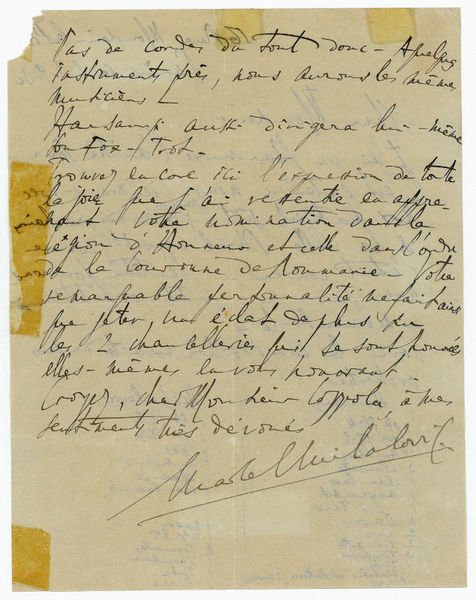 Pas de cordes du tout donc - A quelques
instruments près, nous aurons les mêmes
musiciens -
Harsanyi aussi dirigera lui-même
son Fox-Trot -
Trouvez encore ici l'expression de toute
la joie que j'ai ressentie en appre-
nant votre nomination dans la
Légion d'Honneur et celle dans l'ordre
de la Couronne de Roumanie - Votre
remarquable personnalité ne fait ainsi
que jeter un éclat de plus sur
les 2 chancelleries qui se sont honorées
elles-mêmes en vous honorant
Croyez, cher Monsieur Coppola, à mes
sentiments très dévoués
Marcel Mihalovici